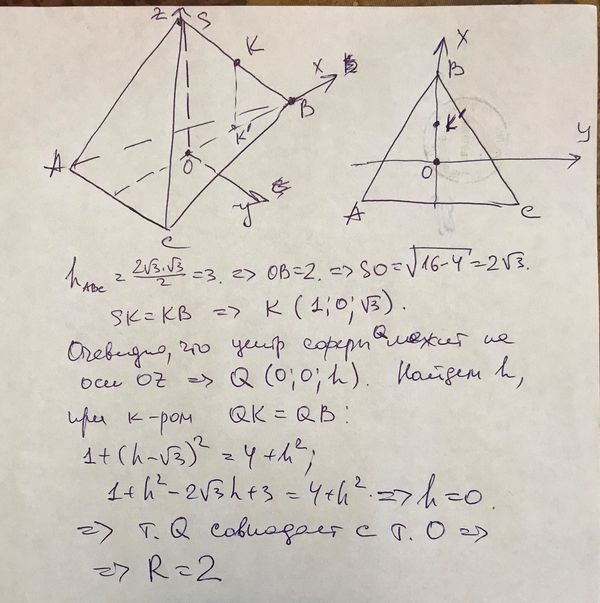 z S
K
x
B
K'
A
O
y
C
x
B
K'
y
O
A
C
h_ABC = 2√3·√3/2 = 3. => OB=2. => SO=√16-4=2√3.
SK=KB => K (1;0;√3).
Очевидно, что центр сферы Q лежит на
оси OZ => Q (0;0;h). Найдем h,
при к-ром QK=QB:
1+(h-√3)²=4+h²;
1+h²-2√3h+3=4+h². => h=0.
=> т. Q совпадает с т. O =>
=> R=2